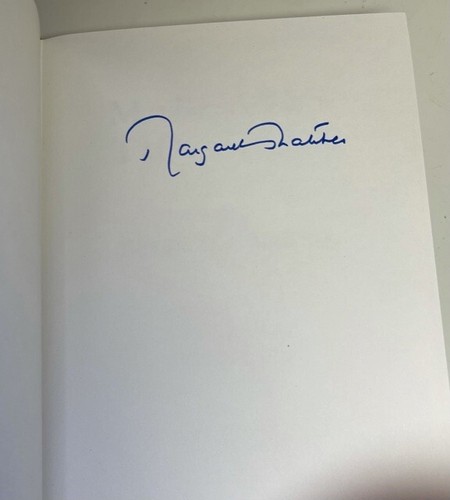 Margaret Thatcher